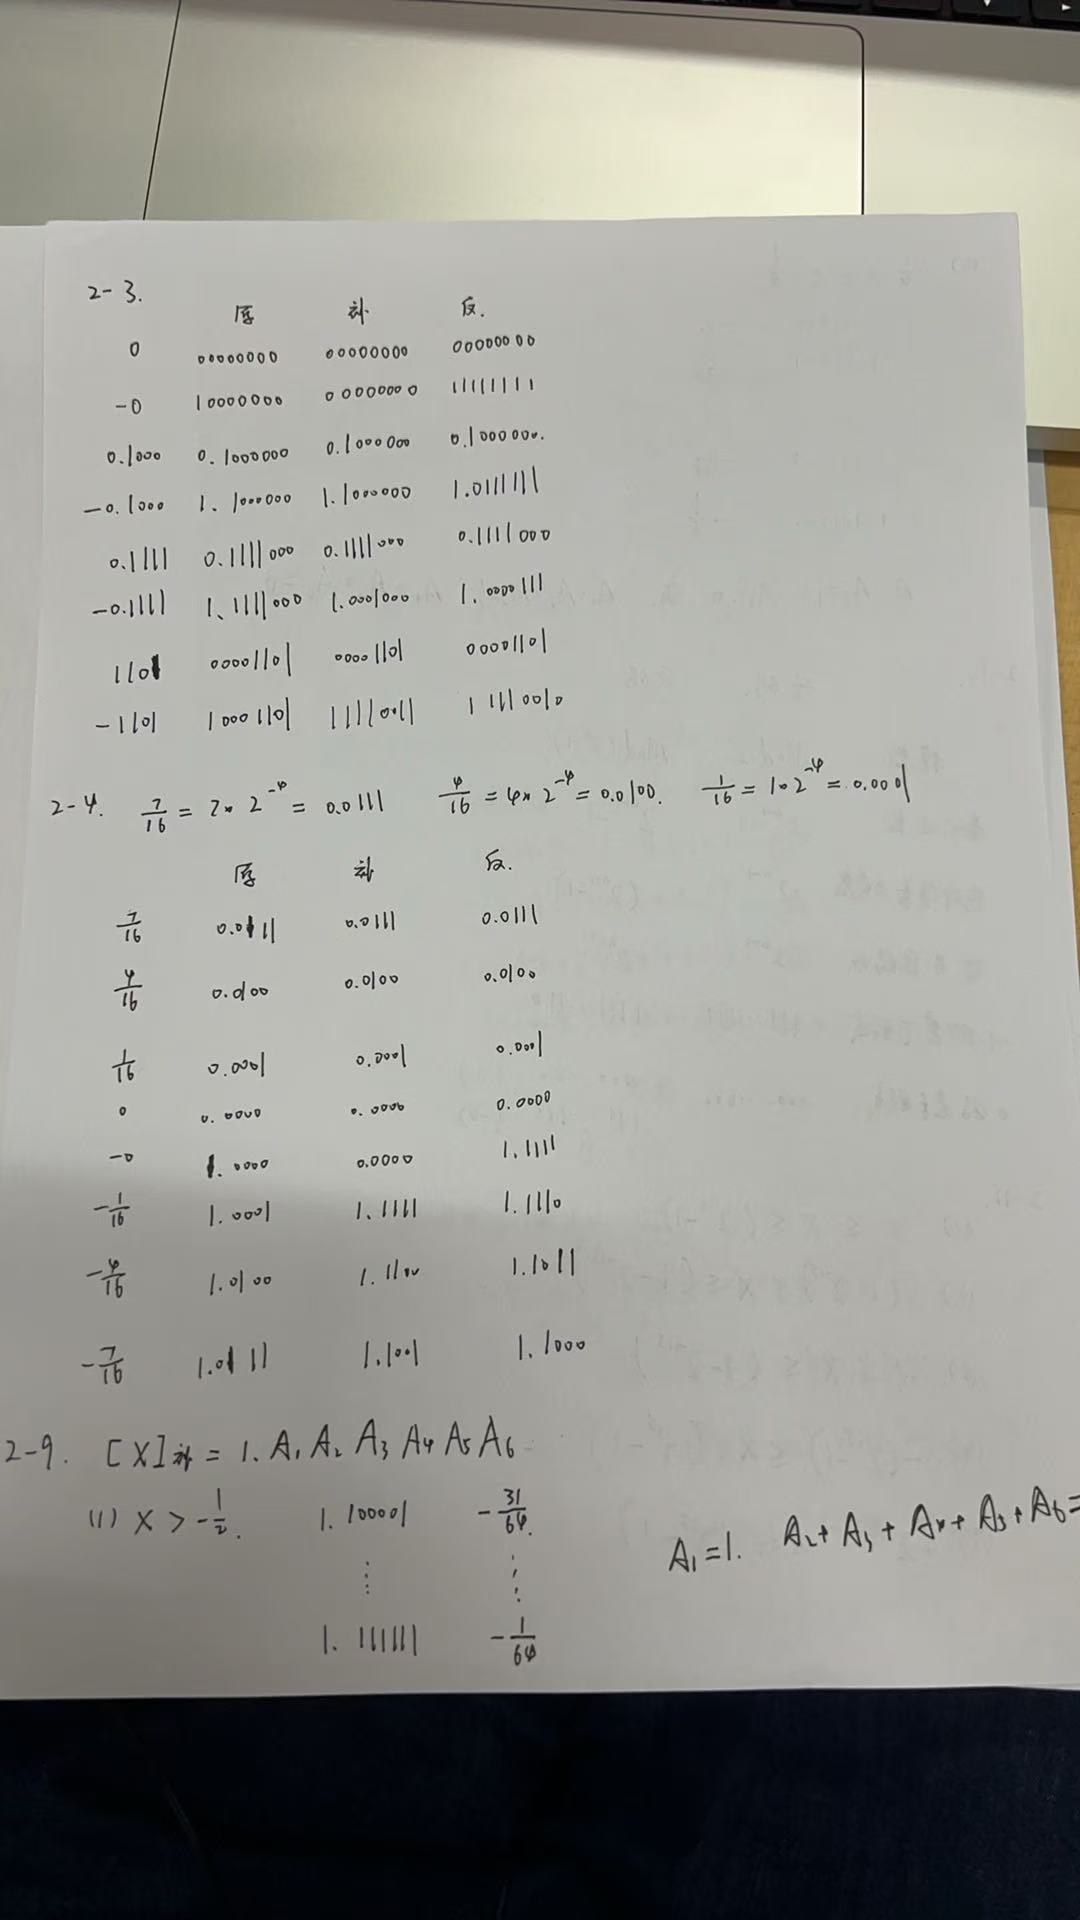 2-3.
原 补 反.
0 00000000 00000000 00000000
-0 10000000 00000000 11111111
0.1000 0.1000000 0.1000000 0.1000000.
-0.1000 1.1000000 1.1000000 1.0111111
0.1111 0.1111000 0.1111000 0.1111000
-0.1111 1.1111000 1.0001000 1.0000111
1101 00001101 00001101 00001101
-1101 10001101 11110011 11110010
2-4. 7/16 = 7×2^-4 = 0.0111 4/16 = 4×2^-4 = 0.0100. 1/16 = 1×2^-4 = 0.0001
原 补 反.
7/16 0.0111 0.0111 0.0111
4/16 0.0100 0.0100 0.0100
1/16 0.0001 0.0001 0.0001
0 0.0000 0.0000 0.0000
-0 1.0000 0.0000 1.1111
-1/16 1.0001 1.1111 1.1110
-4/16 1.0100 1.1100 1.1011
-7/16 1.0111 1.1001 1.1000
2-9. [X]补 = 1.A₁A₂A₃A₄A₅A₆
(1) X > -1/2. 1.100001 -31/64.
A₁=1. A₂+A₃+A₄+A₅+A₆=
⋮ ⋮
1.111111 -1/64